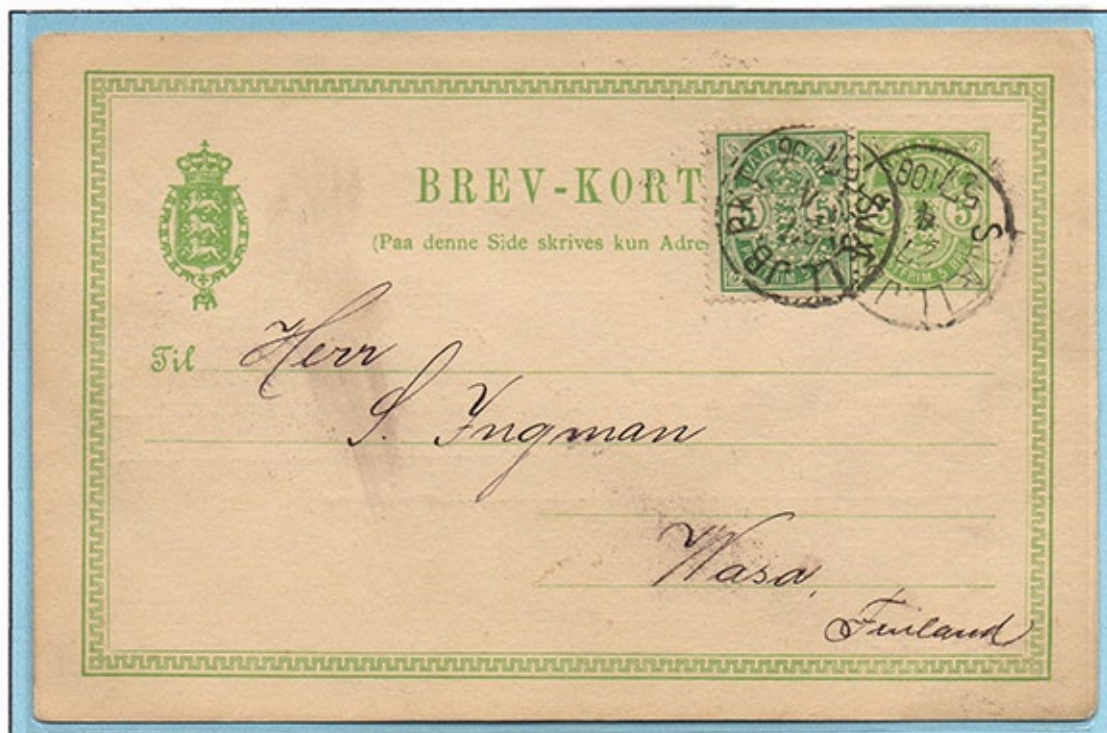 BREV-KORT
(Paa denne Side skrives kun Adre
Til Herr
S. Ingman
Wasa,
Finland